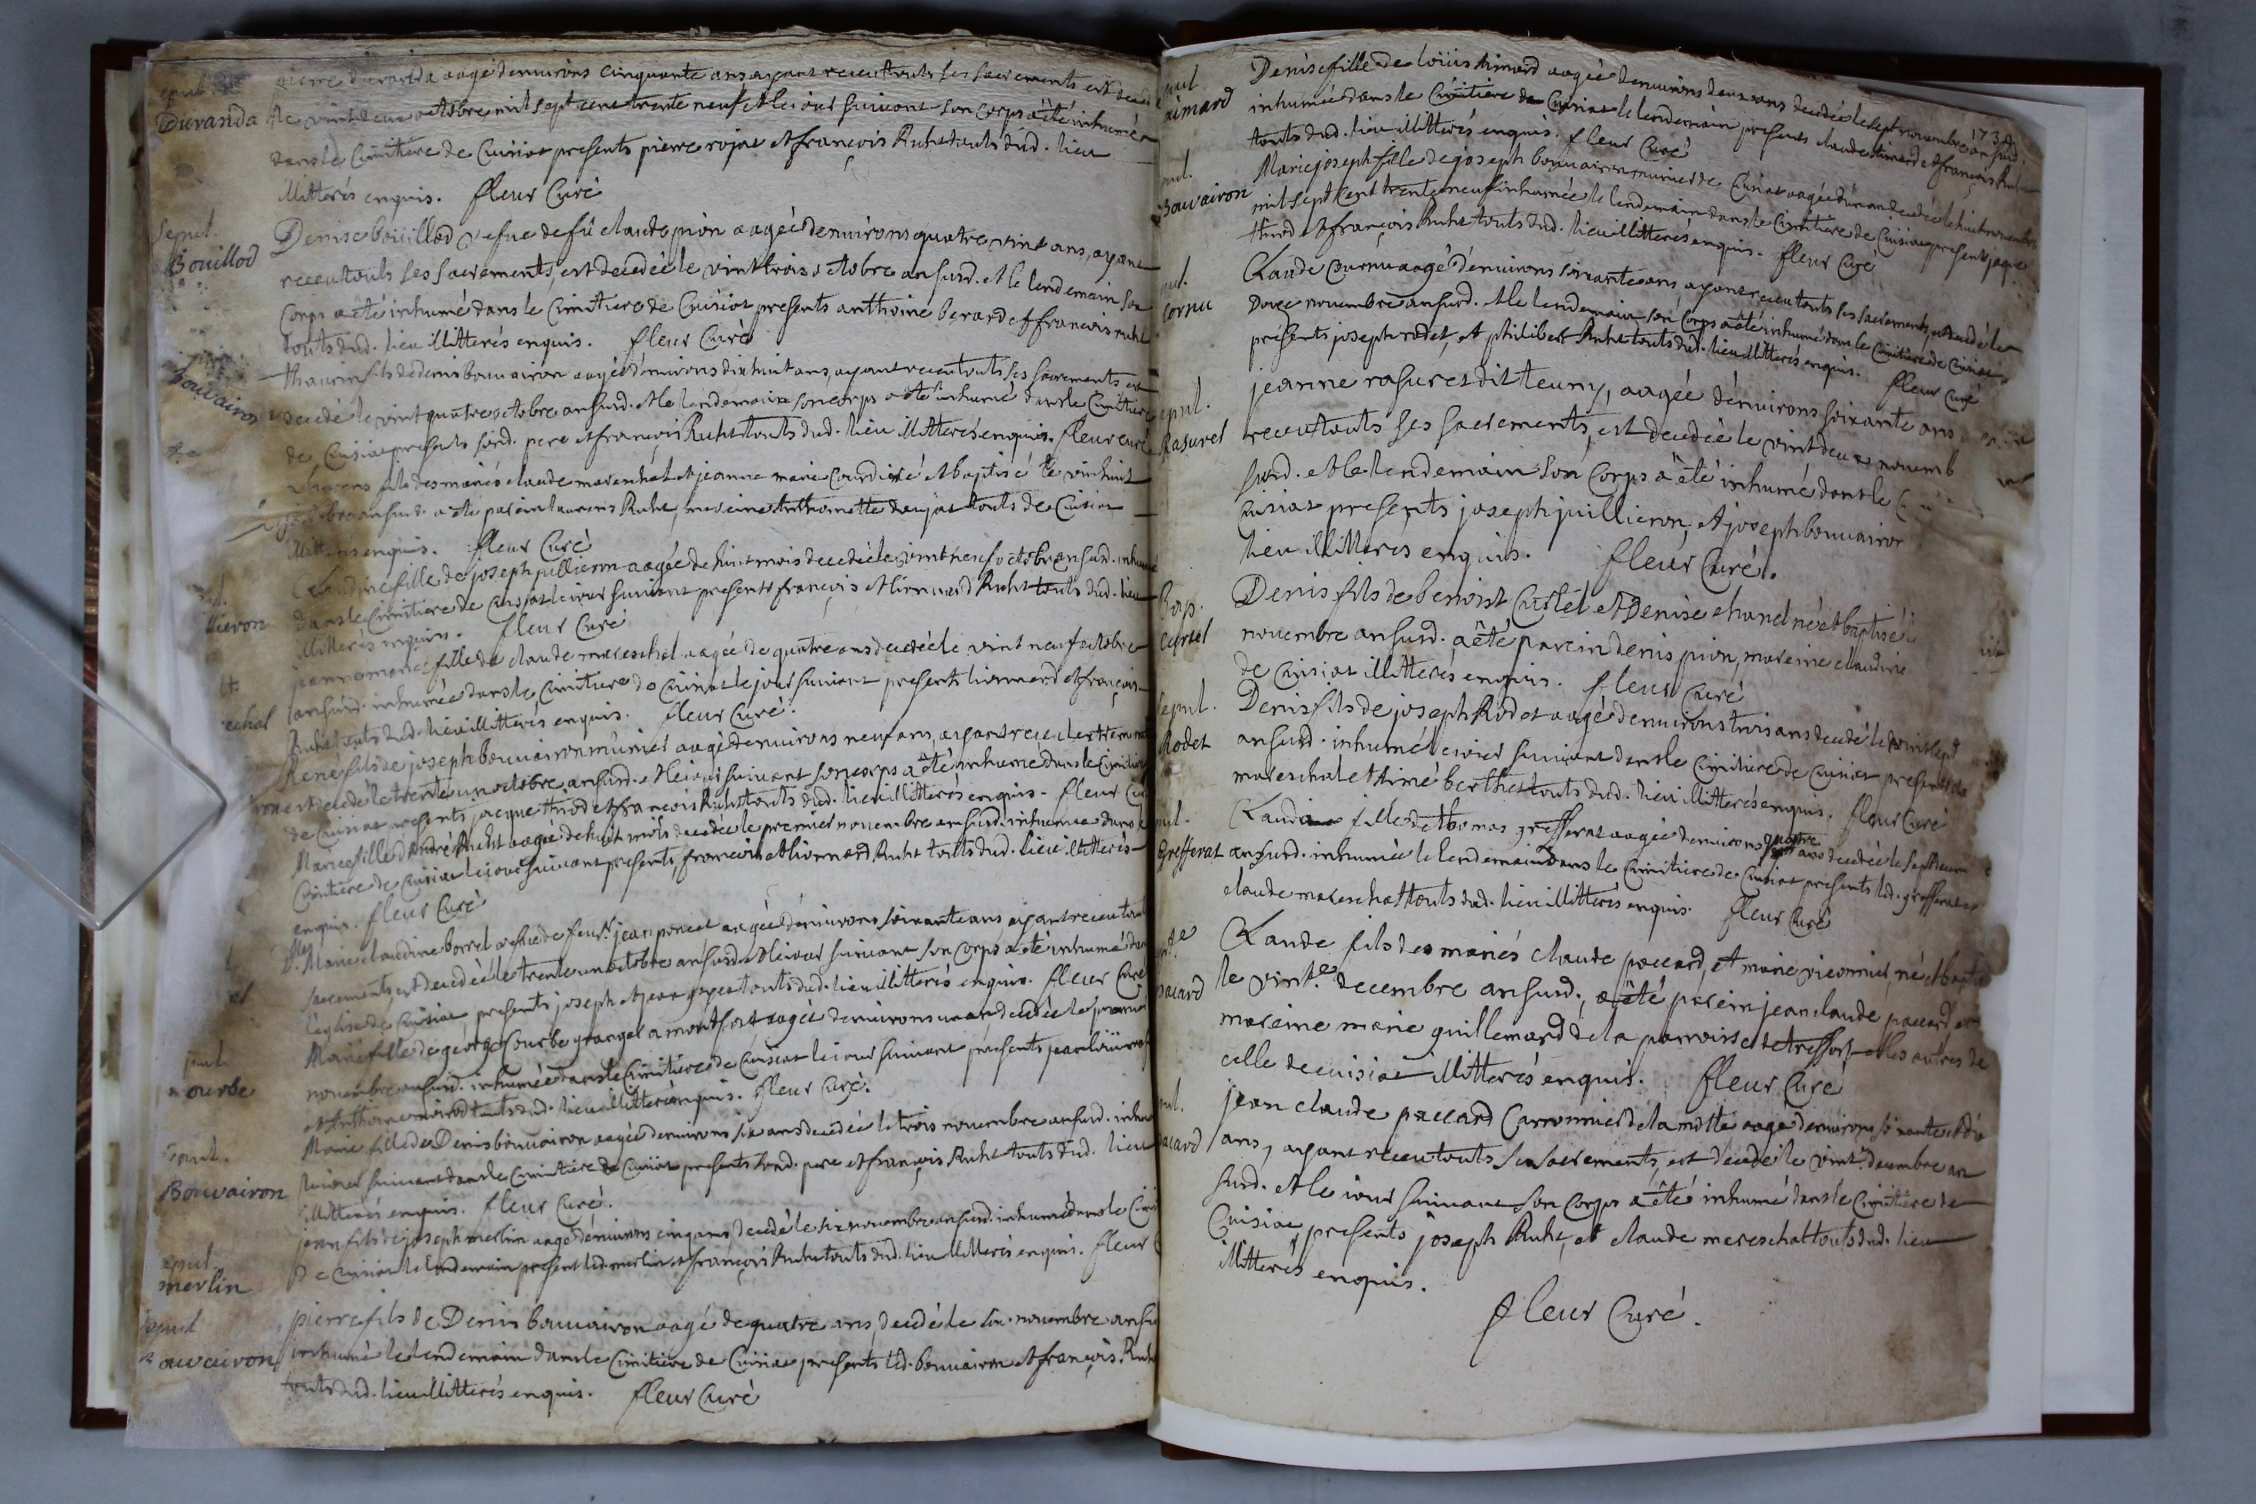 Duranda
pierre duranda aagé denuirons cinquante ans ayant receu touts ses sacrements est decedé
le vint deux octobre mil sept cent trente neuf et le iour suivant son corps a été inhumé
dans le Cimitiere de Cuisiat presents pierre rojat et françois Ruht touts dud. lieu
illitterés enquis. fleur Curé
Sepul.
Bouillod
Denise bouillod vefue de fû claude pion aagée denuirons quatre vint ans, ayant
receu touts ses sacrements, est decedée le vint trois octobre an susd. et le lendemain son
Corps a été inhumé dans le Cimitiere de Cuisiat presents anthoine berard et francois ruht
touts dud. lieu illitterés enquis. fleur Curé
bouvairon
fils de denis bouvairon aagé denuirons dix huit ans, ayant receu touts ses sacrements est
decedé le vint quatre octobre an susd. et le lendemain son corps a été inhumé dans le Cimitiere
de Cuisiat presents sond. pere et françois Ruht touts dud. lieu illitterés enquis. fleur curé
fils des mariés claude mareschal et jeanne marie Courdi né et baptisé le vint huit
octobre an susd. a été parein laurens Ruht, mareine Anthoinette touts de Cuisiat
illitterés enquis. fleur Curé
Claudine fille de joseph juillieron aagée de huit mois decedée le vint neuf octobre an susd. inhumé
dans le Cimitiere de Cuisiat le iour suivant presents françois et lionnard Ruht touts dud. lieu
illitterés enquis. fleur Curé
jeanne marie fille de claude mareschal aagée de quatre ans decedée le vint neuf octobre
an susd. inhumée dans le Cimitiere de Cuisiat le jour suivant presents lionnard et françois
Ruht touts dud. lieu illitterés enquis. fleur Curé.
René fils de joseph bouvairon munier aagé denuirons neuf ans, ayant receu
est decedé le trente un octobre an susd. et le iour suivant son corps a été inhumé dans le Cimitiere
de Cuisiat presents jacque thiod et françois Ruht touts dud. lieu illitterés enquis. fleur
Marie fille d'André Ruht aagée de huit mois decedée le premier nouembre an susd. inhumée dans le
Cimitiere de Cuisiat le iour suivant presents, francois et lionnard Ruht touts dud. lieu illitterés
enquis. fleur Curé
Marie claudine borrel vefue de feu Sr. jean poncet aagée denuirons soixante ans ayant receu
sacements est decedée le trente un octobre an susd. et le iour suivant son Corps a été inhumé dans
l'église de Cuisiat presents joseph et jean touts dud. lieu illitterés enquis. fleur Curé
ourbe
Marie fille de george Courbe granger a montfort aagée denuirons un an decedée le premier
nouembre an susd. inhumée dans le Cimitiere de Cuisiat le iour suivant presents jean
et Anthoine touts dud. lieu illitterés enquis. fleur Curé.
Bouvairon
Marie fille de Denis bouvairon aagée denuirons six ans decedée le trois nouembre an susd. inhu
le iour suivant dans le Cimitiere de Cuisiat presents sond. pere et françois Ruht touts dud. lieu
illitterés enquis. fleur Curé.
epul.
merlin
jean fils de joseph merlin aagé denuirons cinq ans decedé le six nouembre an susd. inhumé dans le
de Cuisiat le lendemain present led. merlin et françois Ruht touts dud. lieu illitterés enquis. fleur
Sepul
ouvairon
pierre fils de Denis bouvairon aagé de quatre ans, decedé le six nouembre an su
inhumé le lendemain dans le Cimitiere de Cuisiat presents led. bouvairon et françois Ruht
touts dud. lieu illitterés enquis. fleur Curé
pul
aimard
Denise fille de loüis Aimard aagée denuirons deux ans decedée le sept nouembre an susd.
173
inhumée dans le Cimitiere de Cuisiat le lendemain presents claude Aimard et françois Ruht
touts dud. lieu illitterés enquis. fleur Curé
pul.
Bouvairon
Marie joseph fille de joseph bouvairon munier de Cuisiat aagée d'un an decedée le huit nouembre
mil sept cent trente neuf inhumée le lendemain dans le Cimitiere de Cuisiat present jaque
thiod et françois Ruht touts dud. lieu illitterés enquis. fleur Curé
pul.
Cornu
Claude Cornu aagé denuirons soixante ans ayant receu touts ses sacrements, est decedé le
Douze nouembre an susd. et le lendemain son Corps a été inhumé dans le Cimitiere de Cuisiat
présents joseph rodet, et philibert Ruht touts dud. lieu illitterés enquis. fleur Curé
epul.
Rasurel
jeanne rasurel dit teuny, aagée denuirons soixante ans
receu touts ses sacrements, est decedée le vint deux nouemb
susd. et le lendemain son Corps a été inhumé dans le C
Cuisiat presents joseph juillieron, et joseph bouvairon
lieu illitterés enquis. fleur Curé.
Bap.
Curtel
Denis fils de benoist Curtel et Denise chanel né et baptisé
nouembre an susd. a été parein denis pion, mareine claudine
de Cuisiat illitterés enquis. fleur Curé
Sepul.
Rodet
Denis fils de joseph Rodet aagé denuirons trois ans decedé le vint sept
an susd. inhumé le iour suivant dans le Cimitiere de Cuisiat presents cla
mareschal et Aimé berthet touts dud. lieu illitterés enquis. fleur Curé
pul.
Grefferat
Claudine fille de thomas grefferat aagée denuirons quatre ans decedée le sept decem
an susd. inhumée le lendemain dans le Cimitiere de Cuisiat presents led. grefferat et
claude mareschal touts dud. lieu illitterés enquis. fleur Curé
pacard
Claude fils des mariés claude paccard, et marie né et bapt
le vint.e decembre an susd., a été parein jean claude paccard et
mareine marie guillemard de la parroisse de treffort et les autres de
celle de cuisiat illitterés enquis. fleur Curé
pul.
pacard
jean claude paccard Carronnier de la motte aagé denuirons soixante et dix
ans, ayant receu touts ses sacrements, est decedé le vint. decembre an
susd. et le iour suivant son Corps a été inhumé dans le Cimitiere de
Cuisiat presents joseph Ruht, et claude mareschal touts dud. lieu
illitterés enquis.
fleur Curé.